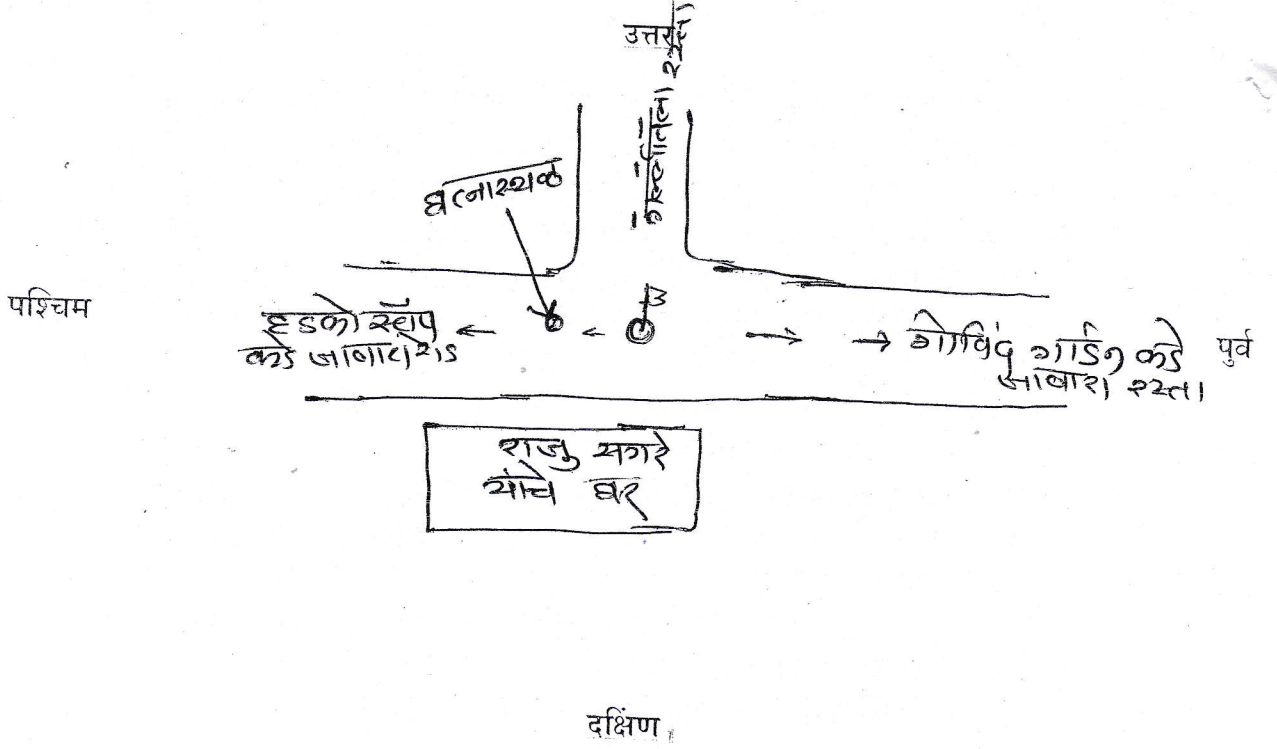 उत्तर
गल्लीतला रस्ता
घटनास्थळ
पश्चिम
हडको स्टॉप
कडे जाणारा रोड
गोविंद गार्डन कडे
जाणारा रस्ता
पुर्व
राजु मगरे
यांचे घर
दक्षिंण